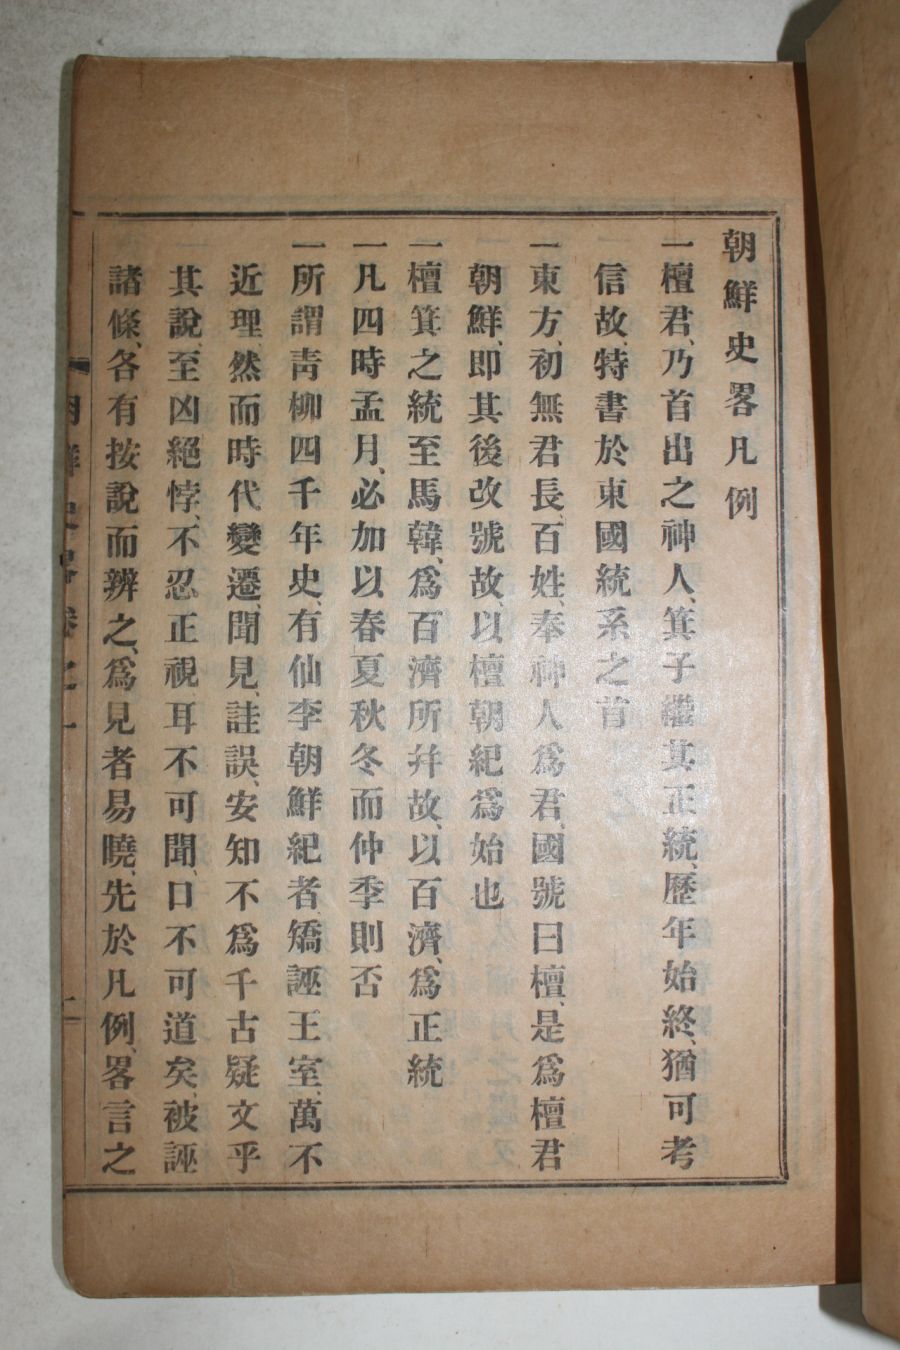 朝鮮史畧凡例
一檀君、乃首出之神人、箕子繼其正統、歷年始終、猶可考
信故、特書於東國統系之首
一東方、初無君長、百姓、奉神人爲君、國號曰檀、是爲檀君
朝鮮、即其後改號故、以檀朝紀爲始也
一檀箕之統至馬韓、爲百濟所幷故、以百濟、爲正統
一凡四時孟月、必加以春夏秋冬而仲季則否
一所謂靑柳四千年史、有仙李朝鮮紀者、矯誣王室、萬不
近理、然而時代變遷、聞見、詿誤、安知不爲千古疑文乎
其說、至凶絕悖、不忍正視耳不可聞、口不可道矣、被誣
諸條、各有按說而辨之、爲見者易曉、先於凡例、畧言之
朝鮮史畧卷之一
一